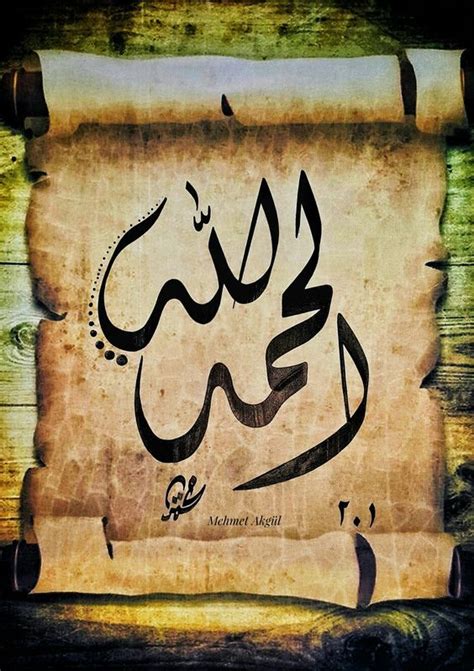 الحمد
لله
Mehmet Akgül
٢٠١